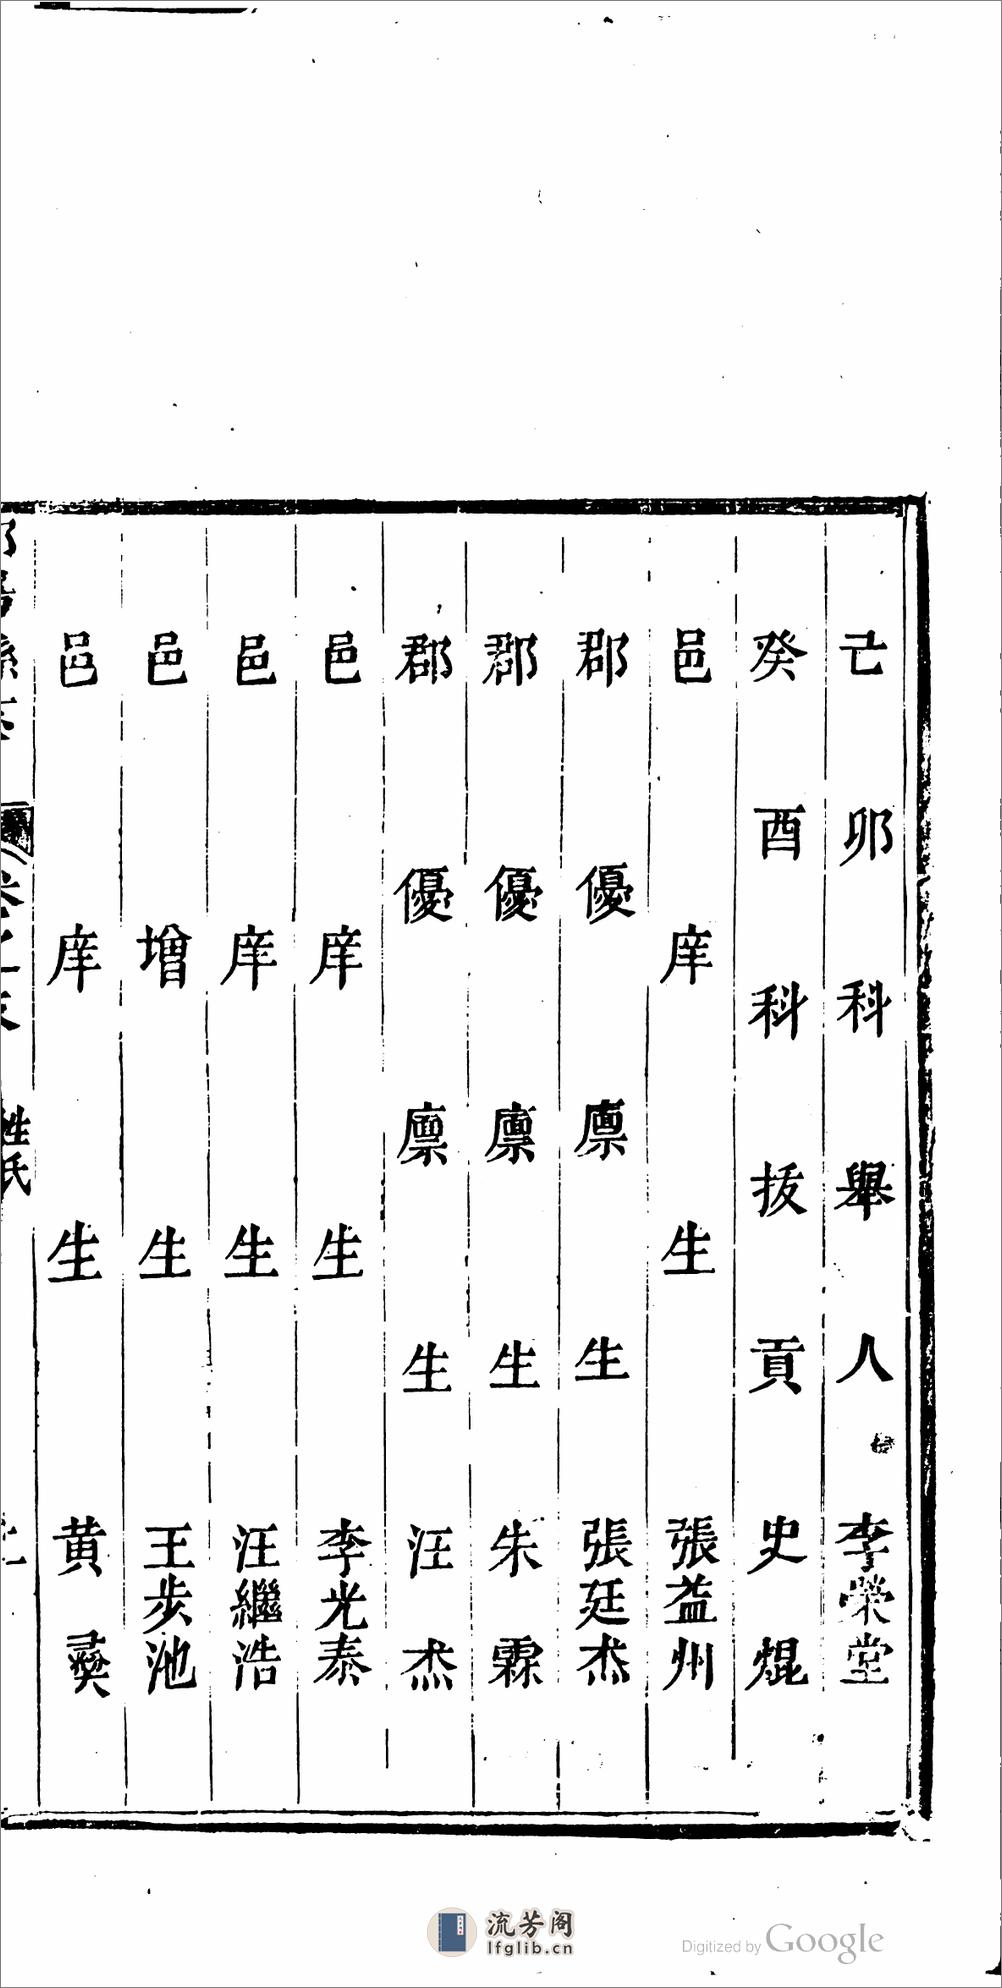 己卯科舉人李榮堂
癸酉科拔貢史焜
邑庠生張益州
郡優廪生張廷杰
郡優廪生朱霖
郡優廪生汪杰
邑庠生李光泰
邑庠生汪繼浩
邑增生王步池
邑庠生黄彛
姓氏
流芳阁
lfglib.cn
Digitized by Google